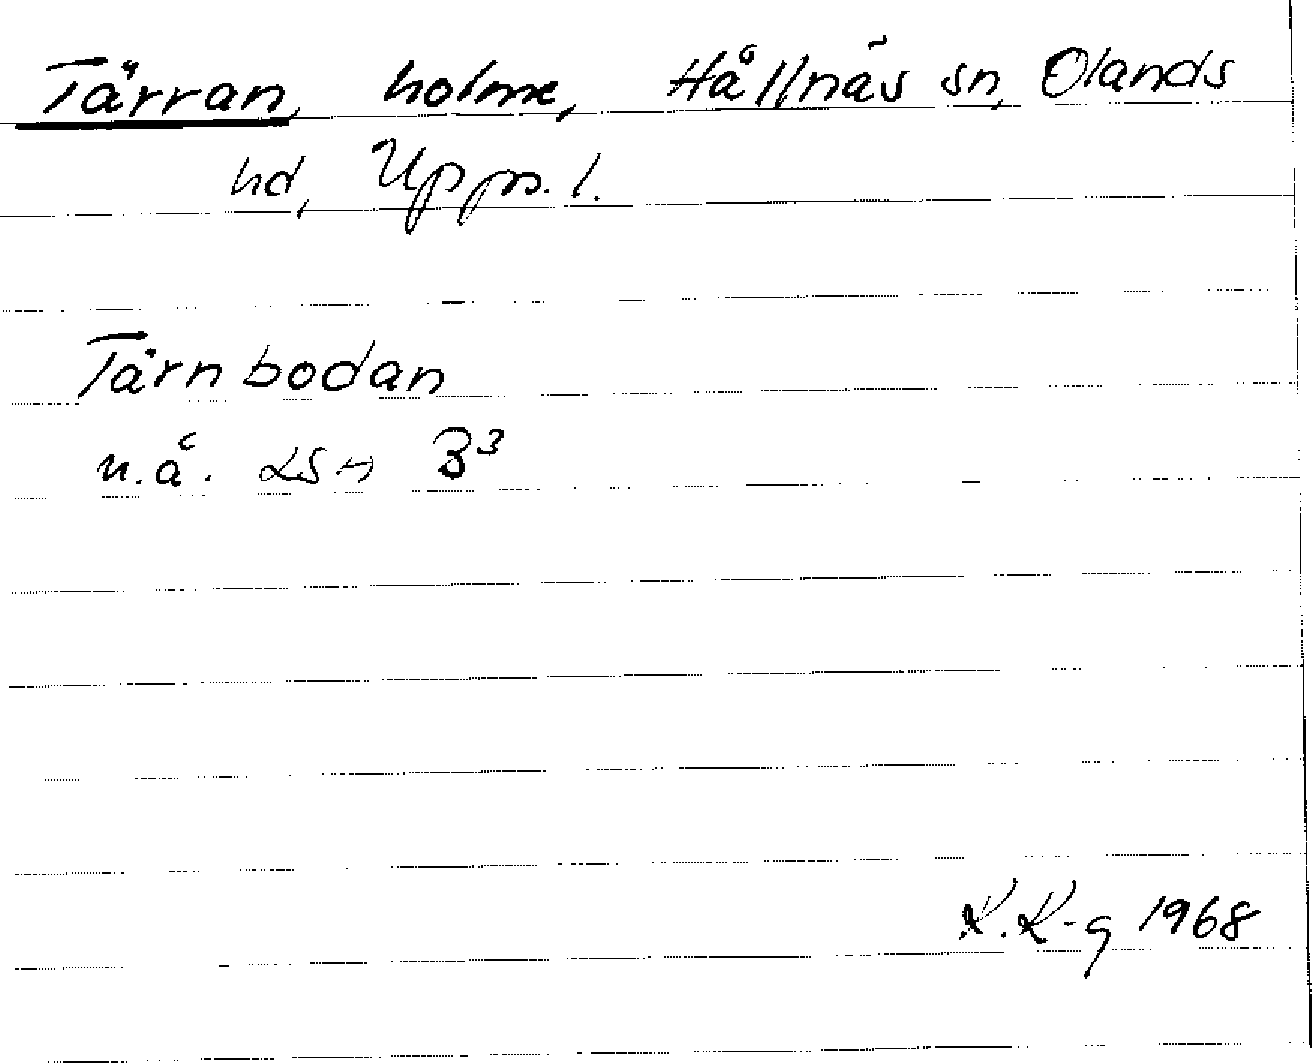 Tärran, holme, Hållnäs sn, Olands
hd, Upps. l.
Tärnbodan
n.å. LSA B³
K.K-g 1968